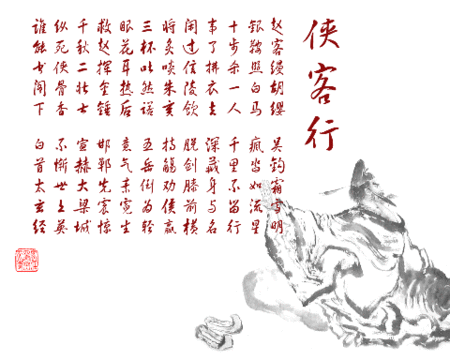 侠客行
赵客缦胡缨 吴钩霜雪明
银鞍照白马 飒沓如流星
十步杀一人 千里不留行
事了拂衣去 深藏身与名
闲过信陵饮 脱剑膝前横
将炙啖朱亥 持觞劝侯嬴
三杯吐然诺 五岳倒为轻
眼花耳热后 意气素霓生
救赵挥金锤 邯郸先震惊
千秋二壮士 宣赫大梁城
纵死侠骨香 不惭世上英
谁能书阁下 白首太玄经